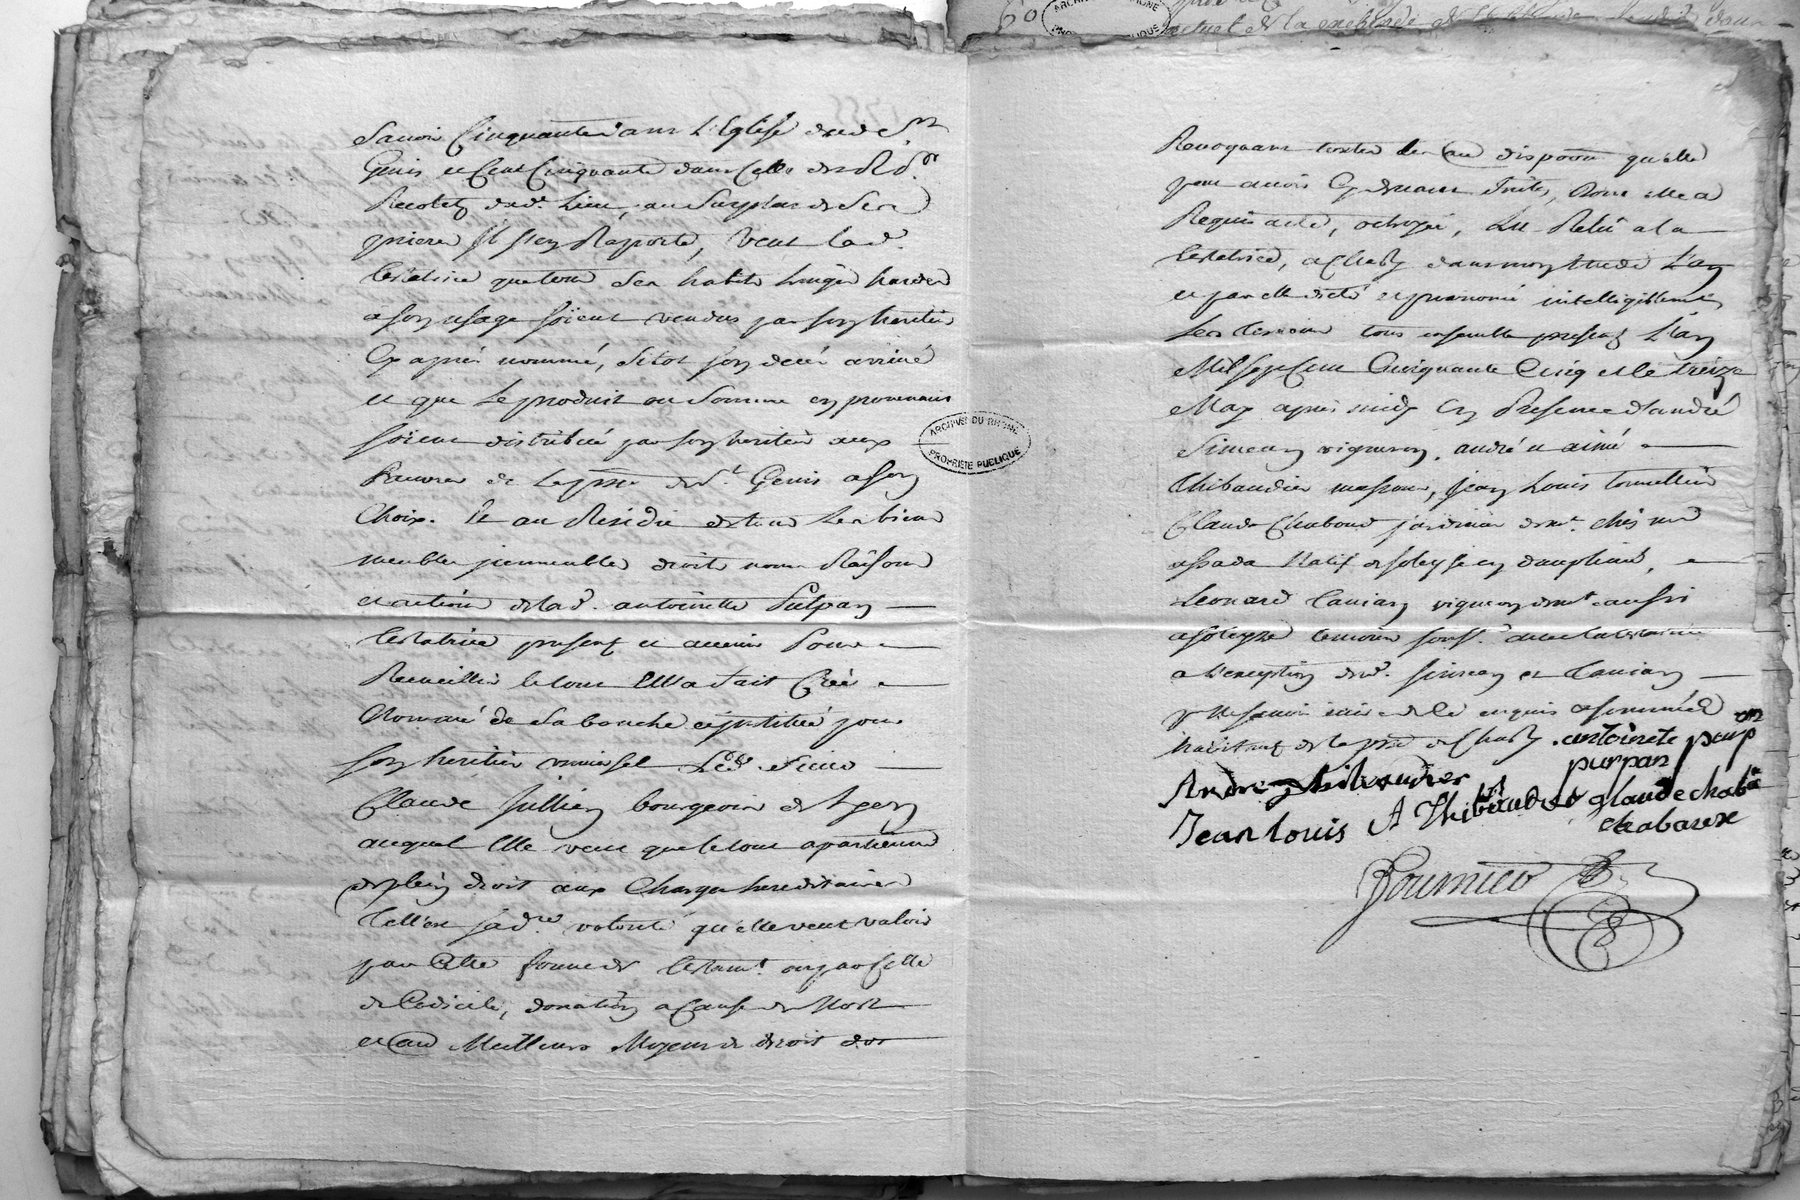 Savoir Cinquante dans L'Eglise dud St
Genis et Cent Cinquante dans Celle des Rds
Recolets dud. Lieu, au Surplus de Ses
prieres Il s'en Raporte, veut lade.
testatrice que tous Ses habits linges hardes
à son usage soient vendus par son heritier
Cy après nommé, Sitot son decés arrivé
et que Le produit ou Somme en provenant
soient distribué par son heritier aux
Pauvres de La psse de St. Genis a son
Choix. Et au Residu de tous Ses biens
meubles immeubles droits noms Raisons
et actions de lade. antoinette Pulpan
testatrice presents et avenir Pour
Recueillir le tout Elle a fait Créé
Nommé de Sa bouche et institué pour
son heritier universel Led. Sieur
Claude Jullien bourgeois de Lyon
auquel Elle veut que le tout apartienne
de plein droit aux Charges hereditaires
Telle est sa dre. volonté qu'elle veut valoir
par Cette forme de testamt. ou par Celle
de Codicile, donation a Cause de Mort
et au Meilleurs Moyens de droit
ARCHIVES DU RHONE
PROPRIETE PUBLIQUE
Revoquant toutes les au dispoons qu'elle
peut avoir Cy devant faites, Dont elle a
Requis acte, octroyé, Lu Relu a la
testatrice, a Chasly dans mon Etude L'an
et par elle dicté et prononcé intelligiblement
Les temoins tous ensemble presents L'an
Mil sept Cent Cinquante Cinq et le treize
May après midy En Presence d'andré
Simean vigneron, andré et aimé
Thibaudier massons, Jean Louis tonnellier
Claude Chabout jardinier demt. chés mr
assada Natif de soleyse en dauphiné,
Leonard Cavian vigneron demt aussi
a soleyze temoins souss. avec la testatrice
a L'exception desd. simean et Cavian
pr Ne savoir ecrire de Ce enquis et sommés
habitants de la psse de Chasly. antoinete poup
purpan
Andre thibaudier
A Thibaudier glaude chaba
Jean louis chabaroze
Fournier